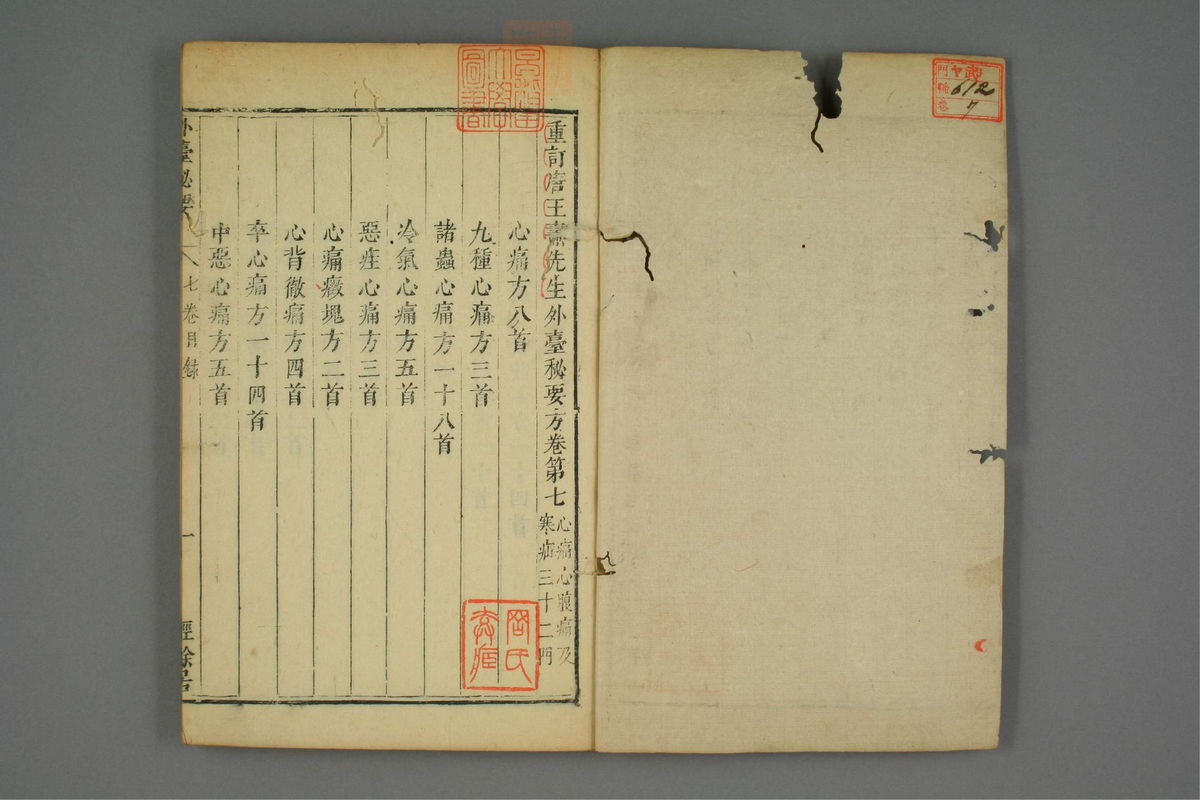 重訂唐王燾先生外臺秘要方卷第七
心痛心腹痛及
寒疝三十二門
心痛方八首
九種心痛方三首
諸蟲心痛方一十八首
冷氣心痛方五首
惡疰心痛方三首
心痛癥塊方二首
心背徹痛方四首
卒心痛方一十四首
中惡心痛方五首
外臺秘要 七卷目録 一 經餘居
612
7